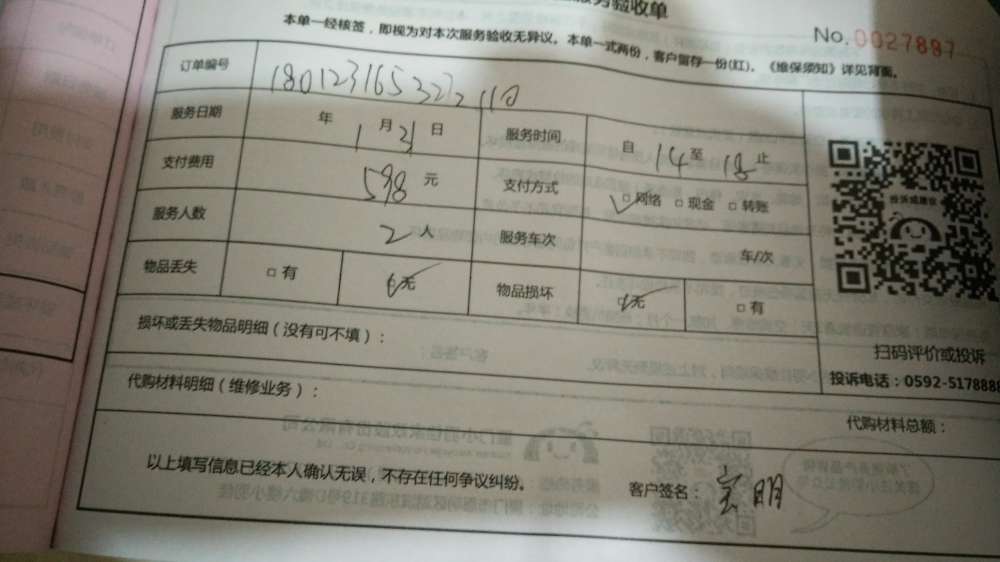 服务验收单
No. 0027887
本单一经核签，即视为对本次服务验收无异议。本单一式两份，客户留存一份(红)。《维保须知》详见背面。
订单编号
服务日期 年 1 月 31 日 服务时间 自 14 至 18 止
支付费用 598 元 支付方式 ☑网络 □现金 □转账
服务人数 2 人 服务车次 车/次
物品丢失 □有 ☑无 物品损坏 ☑无 □有
投诉或建议
损坏或丢失物品明细（没有可不填）：
扫码评价或投诉
投诉电话：0592-5178888
代购材料明细（维修业务）：
代购材料总额：
以上填写信息已经本人确认无误，不存在任何争议纠纷。
客户签名：